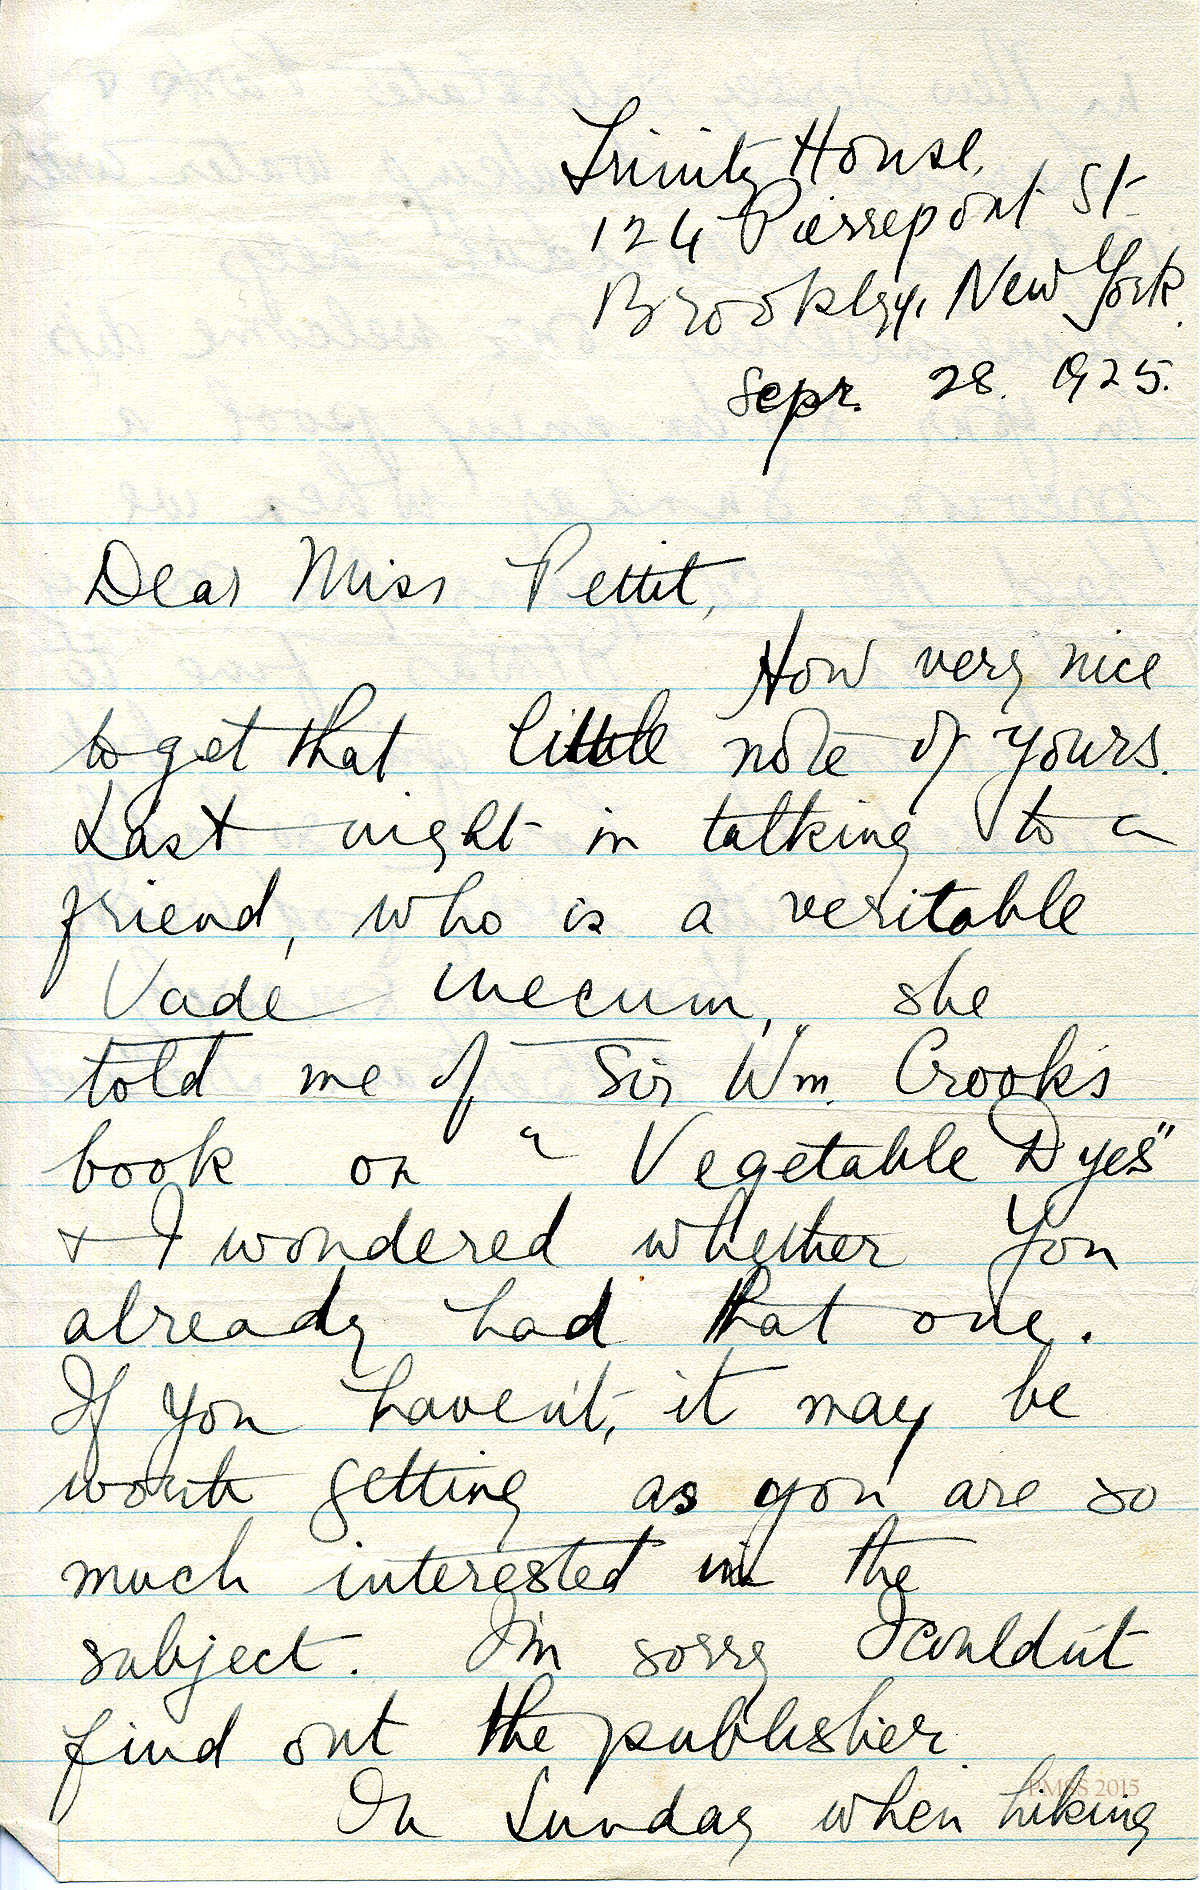 Trinity House,
124 Pierrepont St.
Brooklyn, New York.
Sept. 28. 1925.
Dear Miss Pettit,
How very nice
to get that little note of yours.
Last night in talking to a
friend, who is a veritable
Vade mecum, she
told me of Sir Wm. Crook's
book on "Vegetable Dyes"
& I wondered whether you
already had that one.
If you haven't, it may be
worth getting as you are so
much interested in the
subject. I'm sorry I couldn't
find out the publisher.
On Sunday when hiking
PMSS 2015